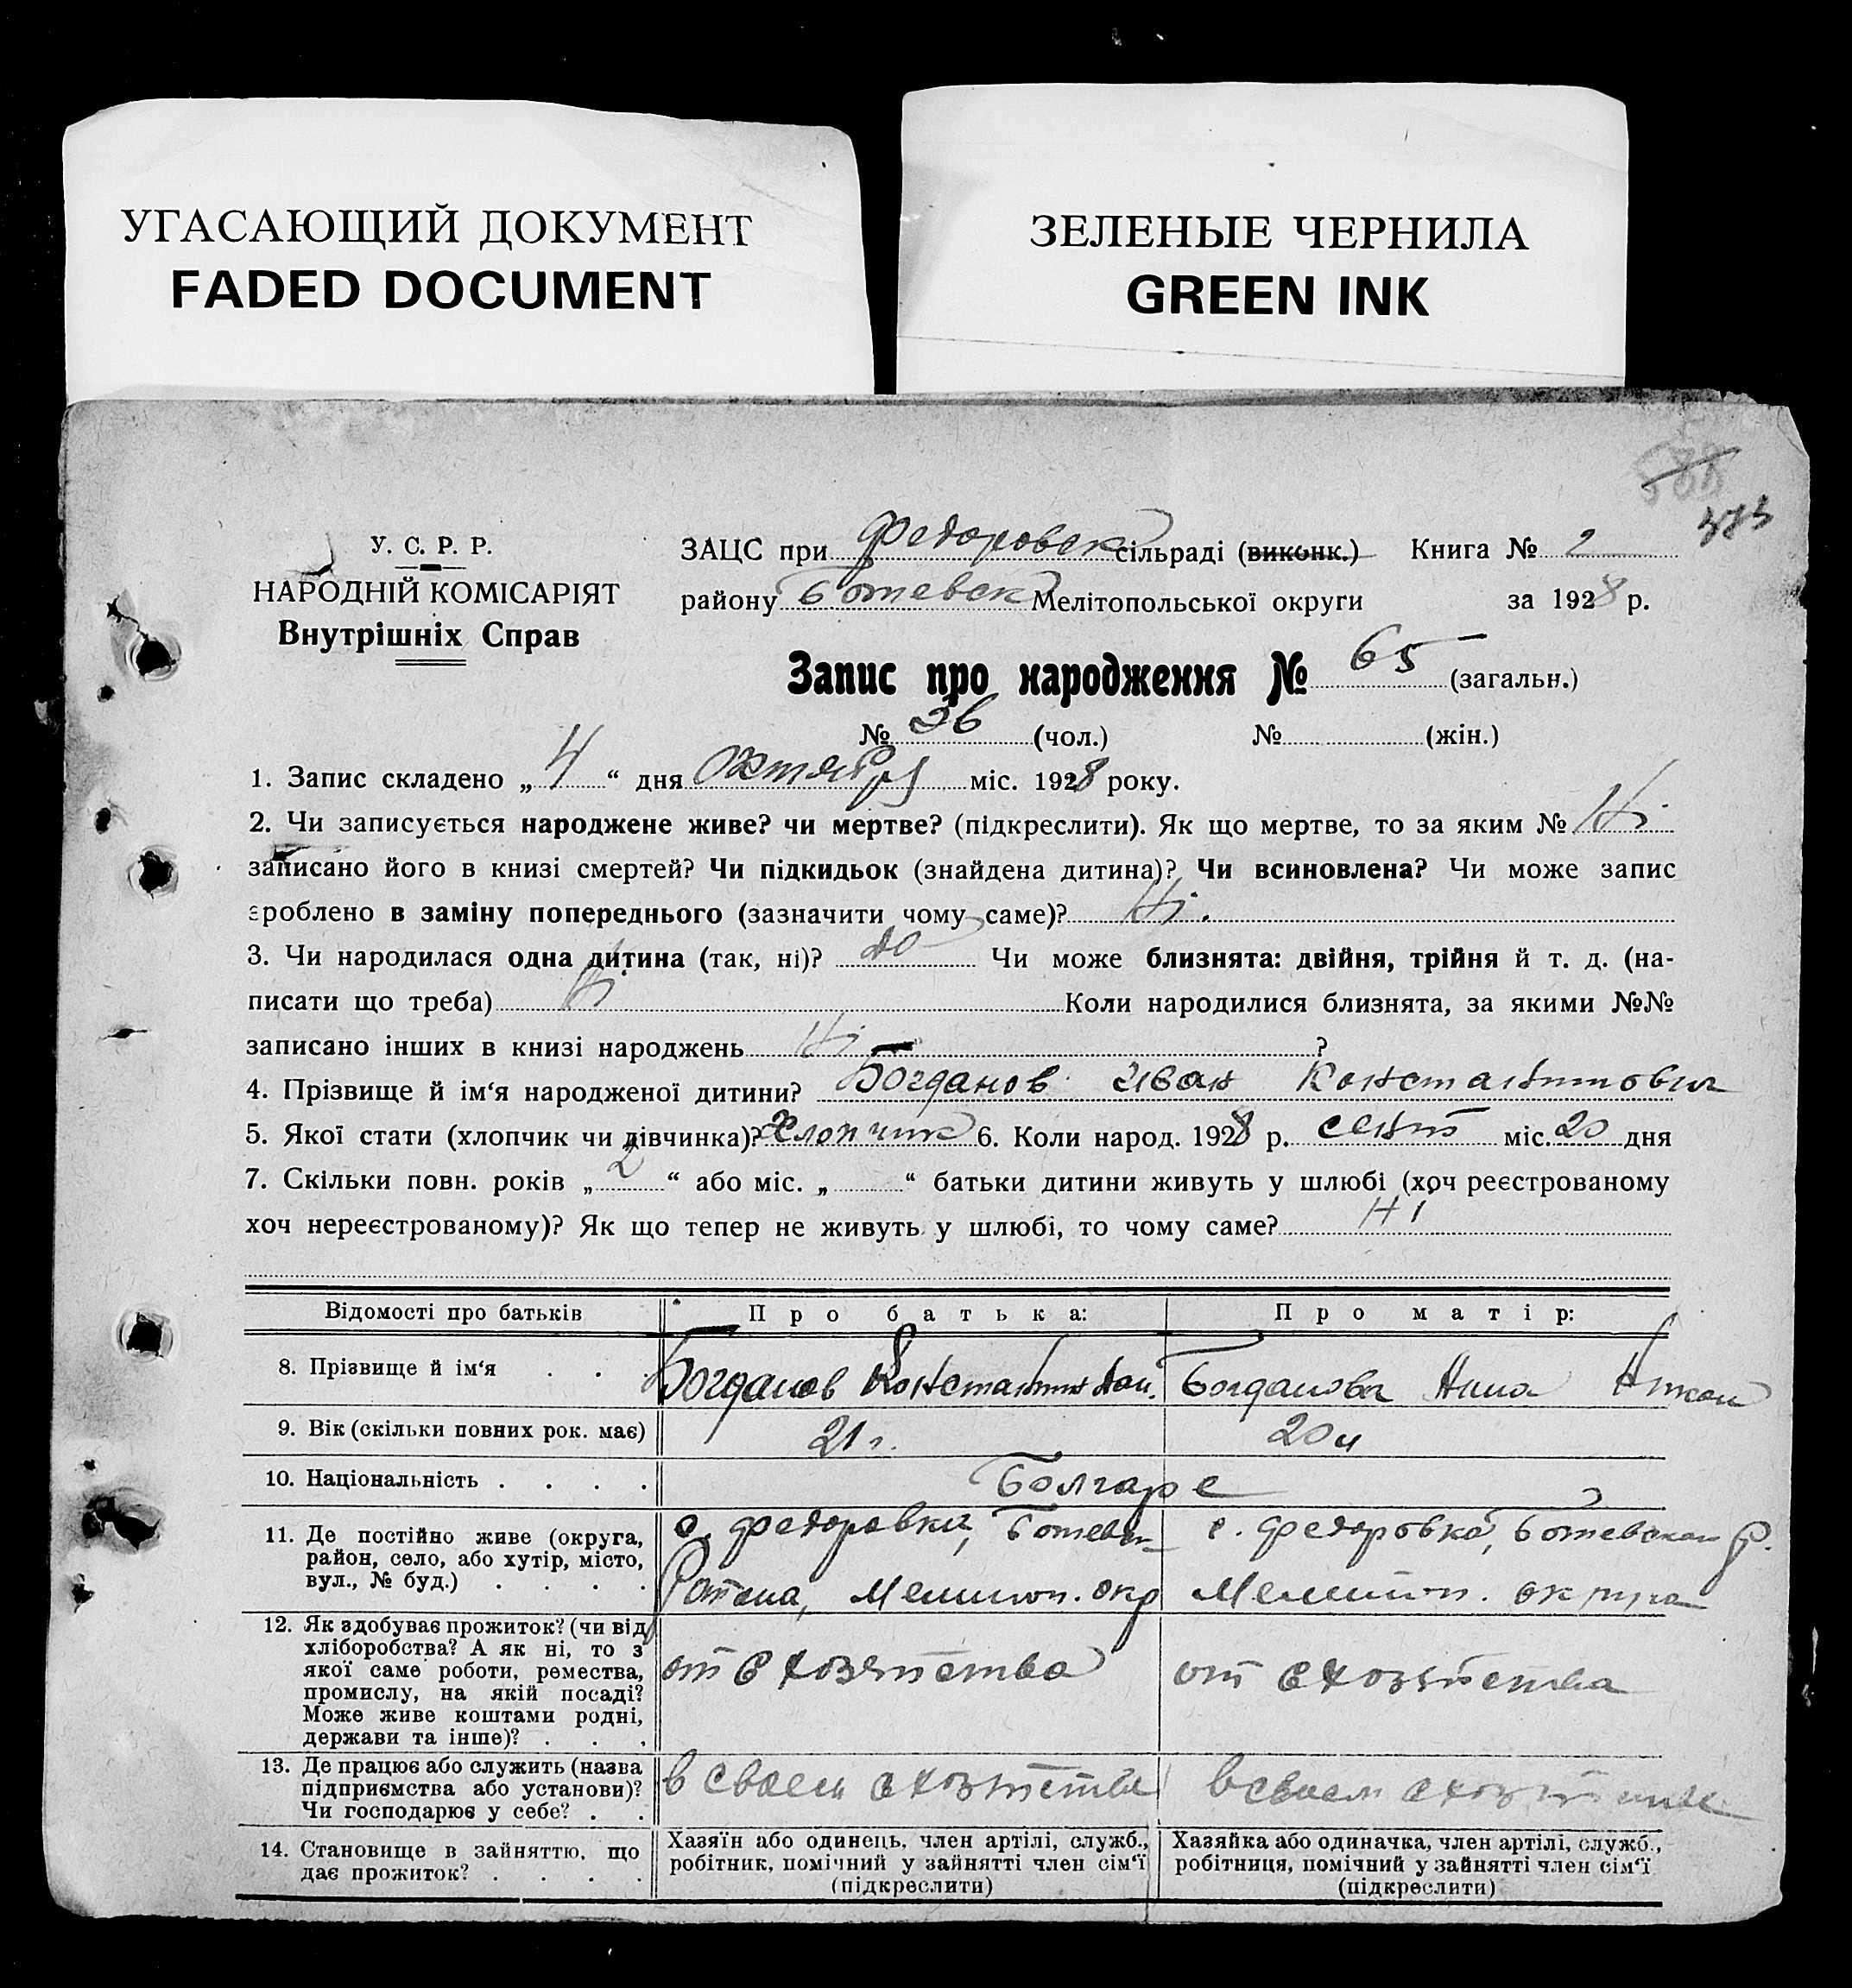 УГАСАЮЩИЙ ДОКУМЕНТ
FADED DOCUMENT
ЗЕЛЕНЫЕ ЧЕРНИЛА
GREEN INK
588
У. С. Р. Р.
НАРОДНІЙ КОМІСАРІЯТ
Внутрішніх Справ
ЗАЦС при Федоровск сільраді (виконк.) Книга № 2
району Ботевск Мелітопольської округи за 1928 р.
Запис про народження № 65 (загальн.)
№ 36 (чол.) № (жін.)
1. Запис складено „ 4 “ дня октября міс. 1928 року.
2. Чи записується народжене живе? чи мертве? (підкреслити). Як що мертве, то за яким № Ні
записано його в книзі смертей? Чи підкидьок (знайдена дитина)? Чи всиновлена? Чи може запис
зроблено в заміну попереднього (зазначити чому саме)? Ні.
3. Чи народилася одна дитина (так, ні)? до Чи може близнята: двійня, трійня й т. д. (на-
писати що треба) Ні Коли народилися близнята, за якими №№
записано інших в книзі народжень Ні ?
4. Прізвище й ім‘я народженої дитини? Богданов Иван Константинович
5. Якої стати (хлопчик чи дівчинка)? Хлопчик 6. Коли народ. 1928 р. сент міс. 20 дня
7. Скільки повн. років „ 2 “ або міс. „ “ батьки дитини живуть у шлюбі (хоч реєстрованому
хоч нереєстрованому)? Як що тепер не живуть у шлюбі, то чому саме? Ні
Відомості про батьків Про батька: Про матір:
8. Прізвище й ім‘я . . . Богданов Константин Богданова Анна
9. Вік (скільки повних рок. має) 21 г. 20 л
10. Національність . . . . Болгаре
11. Де постійно живе (округа,
район, село, або хутір, місто,
вул., № буд.) . . . .
с. Федоровки, Ботевск
Района, Мелитоп. окр
с. Федоровка, Ботевскаи р.
Мелитоп. округа
12. Як здобуває прожиток? (чи від
хліборобства? А як ні, то з
якої саме роботи, ремества,
промислу, на якій посаді?
Може живе коштами родні,
держави та інше)? . . .
от с хозяйства
от с хозяйства
13. Де працює або служить (назва
підприємства або установи)?
Чи господарює у себе? . .
в своем с хозяйстве
в своем с хозяйстве
14. Становище в зайняттю, що
дає прожиток? . . . .
Хазяїн або одинець, член артілі, служб.,
робітник, помічний у зайнятті член сім‘ї
(підкреслити)
Хазяйка або одиначка, член артілі, служб.,
робітниця, помічний у зайнятті член сім‘ї
(підкреслити)